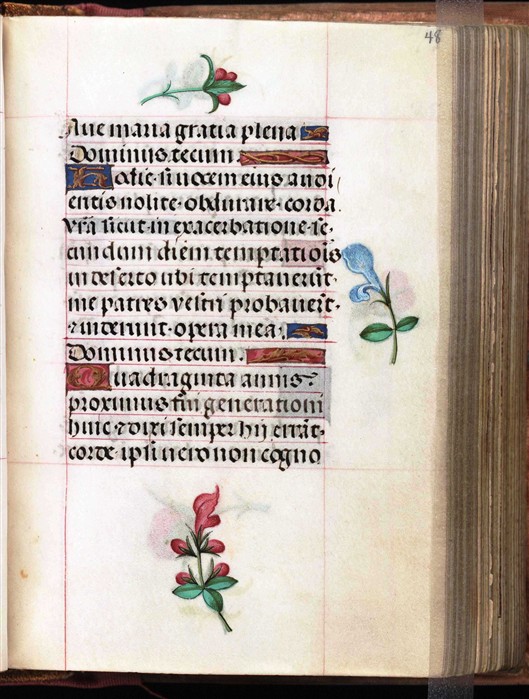 48
Aue maria gratia plena
Dominus tecum.
Hodie si uocem eius audi
entis nolite obdurare corda
vr̄a sicut in exacerbatione se-
cundum diem temptatiōis
in deserto ubi temptauerūt
me patres vestri probauer̄t
⁊ uiderunt opera mea.
Dominus tecum.
Quadraginta annis
proximus fui generationi
huic ⁊ dixi semper hii errāt
corde ipsi uero non cogno